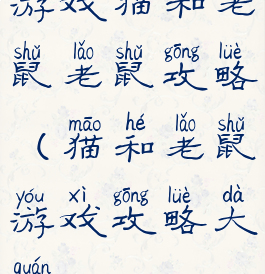 游戏猫和老
shǔ lǎo shǔ gōng lüè
鼠老鼠攻略
māo hé lǎo shǔ
（猫和老鼠
yóu xì gōng lüè dà
游戏攻略大
quán